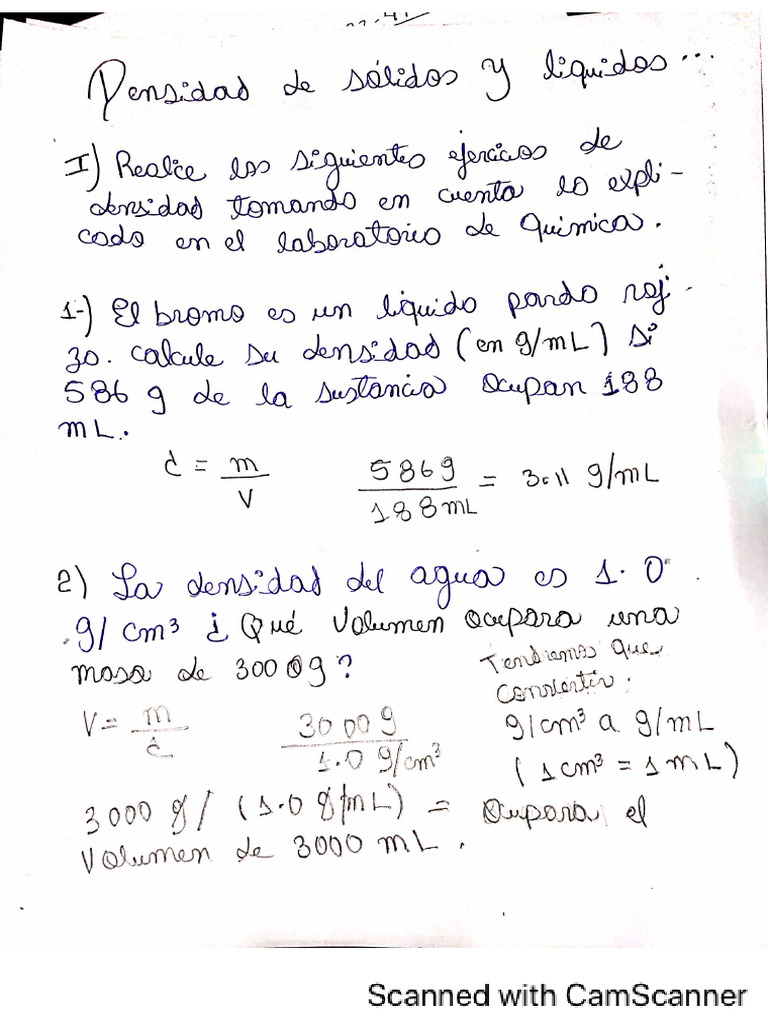 Densidad de sólidos y liquidos...
I) Realice los siguientes ejercicios de
densidad tomando en cuenta lo expli-
cado en el laboratorio de Quimica.
1-) El bromo es un líquido pardo roj-
zo. calcule su densidad (en g/mL) si
586 g de la sustancia ocupan 188
mL.
d = m/V 586g/188mL = 3.11 g/mL
2) La densidad del agua es 1.0
g/cm³ ¿Qué volumen ocupara una
masa de 3000g?
Tendremos que
convertir:
V = m/d 3000g/1.0 g/cm³ g/cm³ a g/mL
(1cm³ = 1mL)
3000 g/ (1.0 g/mL) = Ocupara el
Volumen de 3000 mL.
Scanned with CamScanner